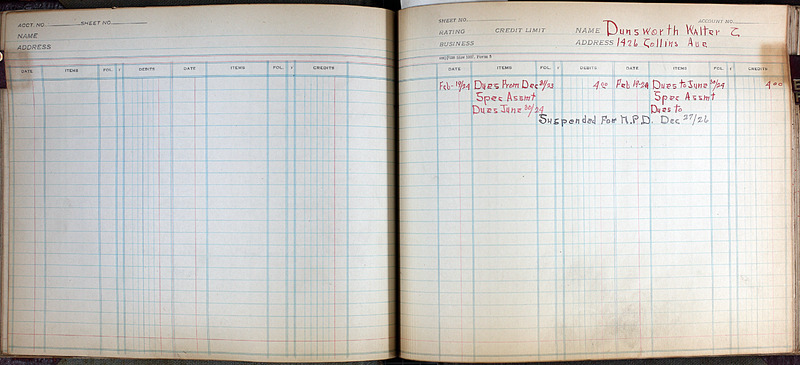 ACCT. NO. SHEET NO.
NAME
ADDRESS
DATE ITEMS FOL. √ DEBITS DATE ITEMS FOL. √ CREDITS
SHEET NO. ACCOUNT NO.
RATING CREDIT LIMIT NAME Dunsworth Walter
BUSINESS ADDRESS 1426 Collins Ave
DATE ITEMS FOL. √ DEBITS DATE ITEMS FOL. √ CREDITS
Feb-19/24 Dues From Dec 31/23 4 00 Feb 19-24 Dues to June 30/24 4 00
Spec Assmt Spec Assmt
Dues June 30/24 Dues to
Suspended For N.P.D. Dec 27/26